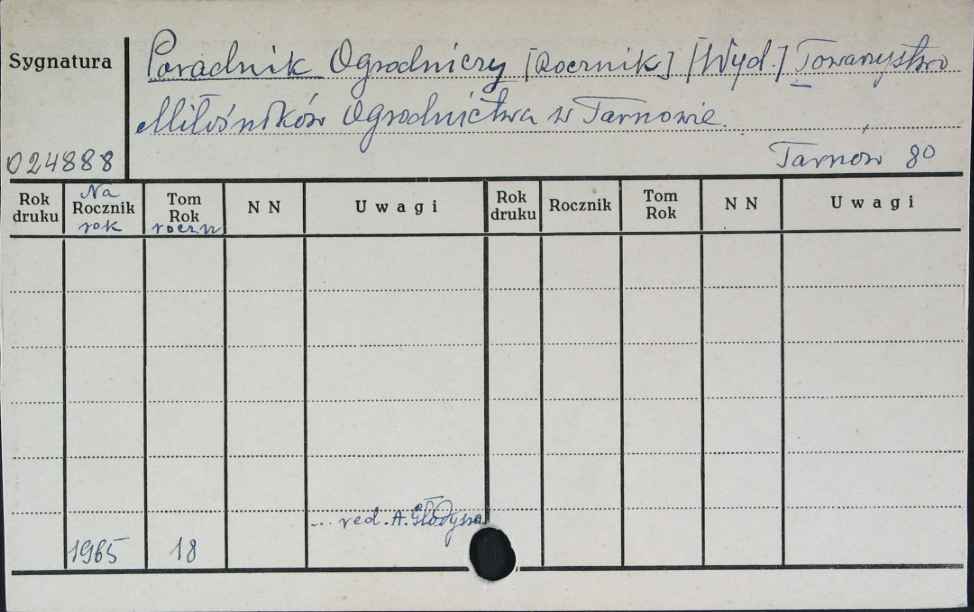 Sygnatura
Poradnik Ogrodniczy [Rocznik] [Wyd.] Towarzystwo
Miłośników Ogrodnictwa w Tarnowie.
024888
Tarnów 8°
Rok druku
Na Rocznik rok
Tom Rok roczn
N N
Uwagi
Rok druku
Rocznik
Tom Rok
N N
Uwagi
... red. A.
1965 18